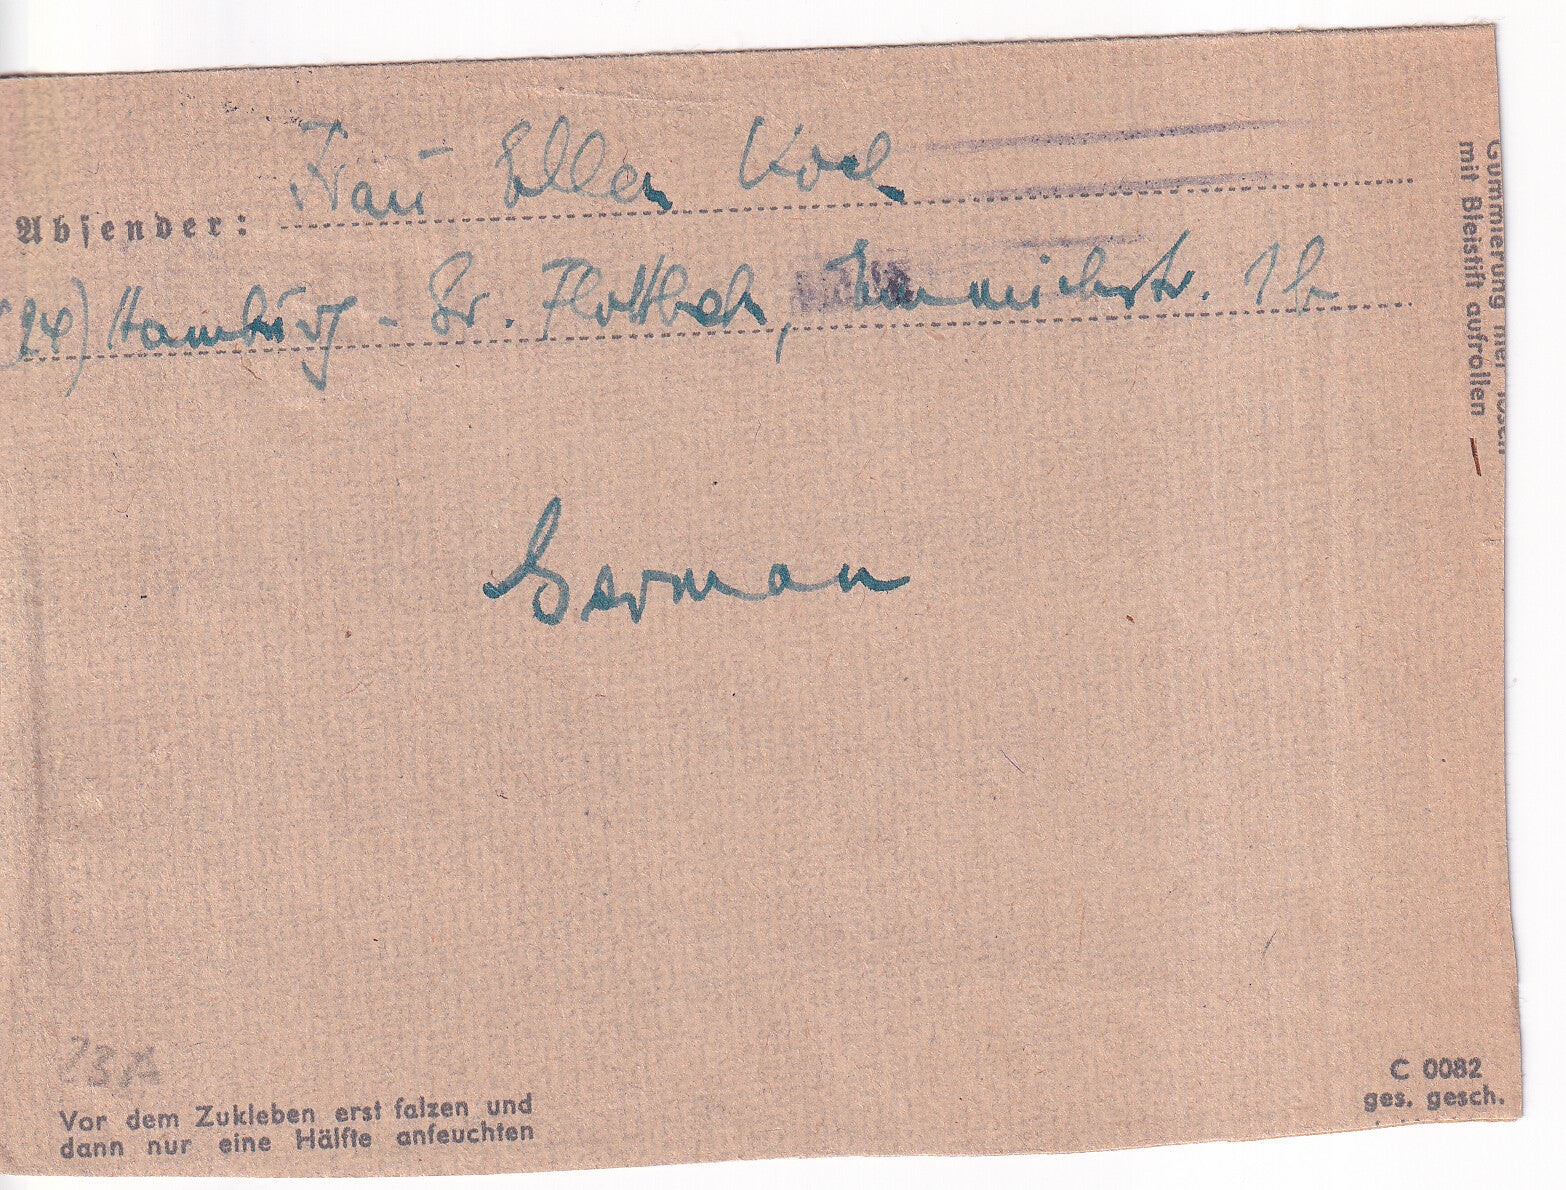 Absender: Frau Ellen Koch
(24) Hamburg - Gr. Flottbek, Emmichstr. 1b
Gummierung hier lösen
mit Bleistift aufrollen
German
23
Vor dem Zukleben erst falzen und
dann nur eine Hälfte anfeuchten
C 0082
ges. gesch.